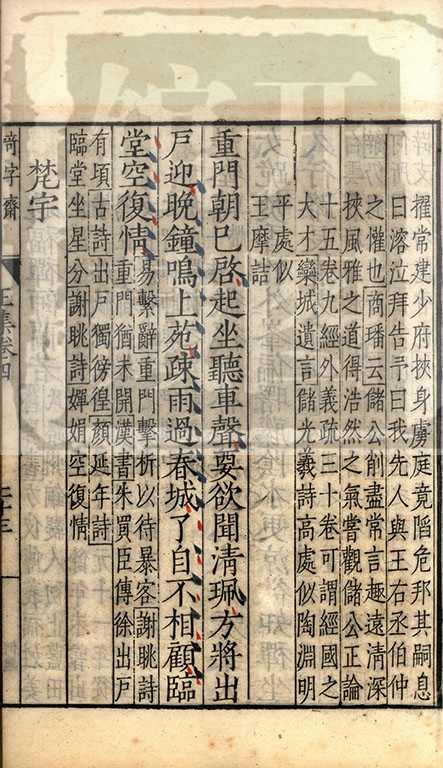 擢常建少府挾身虜庭竟陷危邦其嗣息
曰溶泣拜告予曰我先人與王右丞伯仲
之懽也商璠云儲公削盡常言趣遠清深
挾風雅之道得浩然之氣嘗觀儲公正論
十五卷九經外義疏三十卷可謂經國之
大才欒城遺言儲光羲詩高處似陶淵明
平處似
王摩詰
重門朝已啓起坐聽車聲要欲聞清珮方將出
戶迎晚鐘鳴上苑疎雨過春城了自不相顧臨
堂空復情
易繫辭重門擊析以待暴客謝眺詩
重門猶未開漢書朱買臣傳徐出戶
有頃古詩出戶獨徬徨顏延年詩
臨堂坐星分謝眺詩嬋娟空復情
梵宇
奇字齋
王集卷四